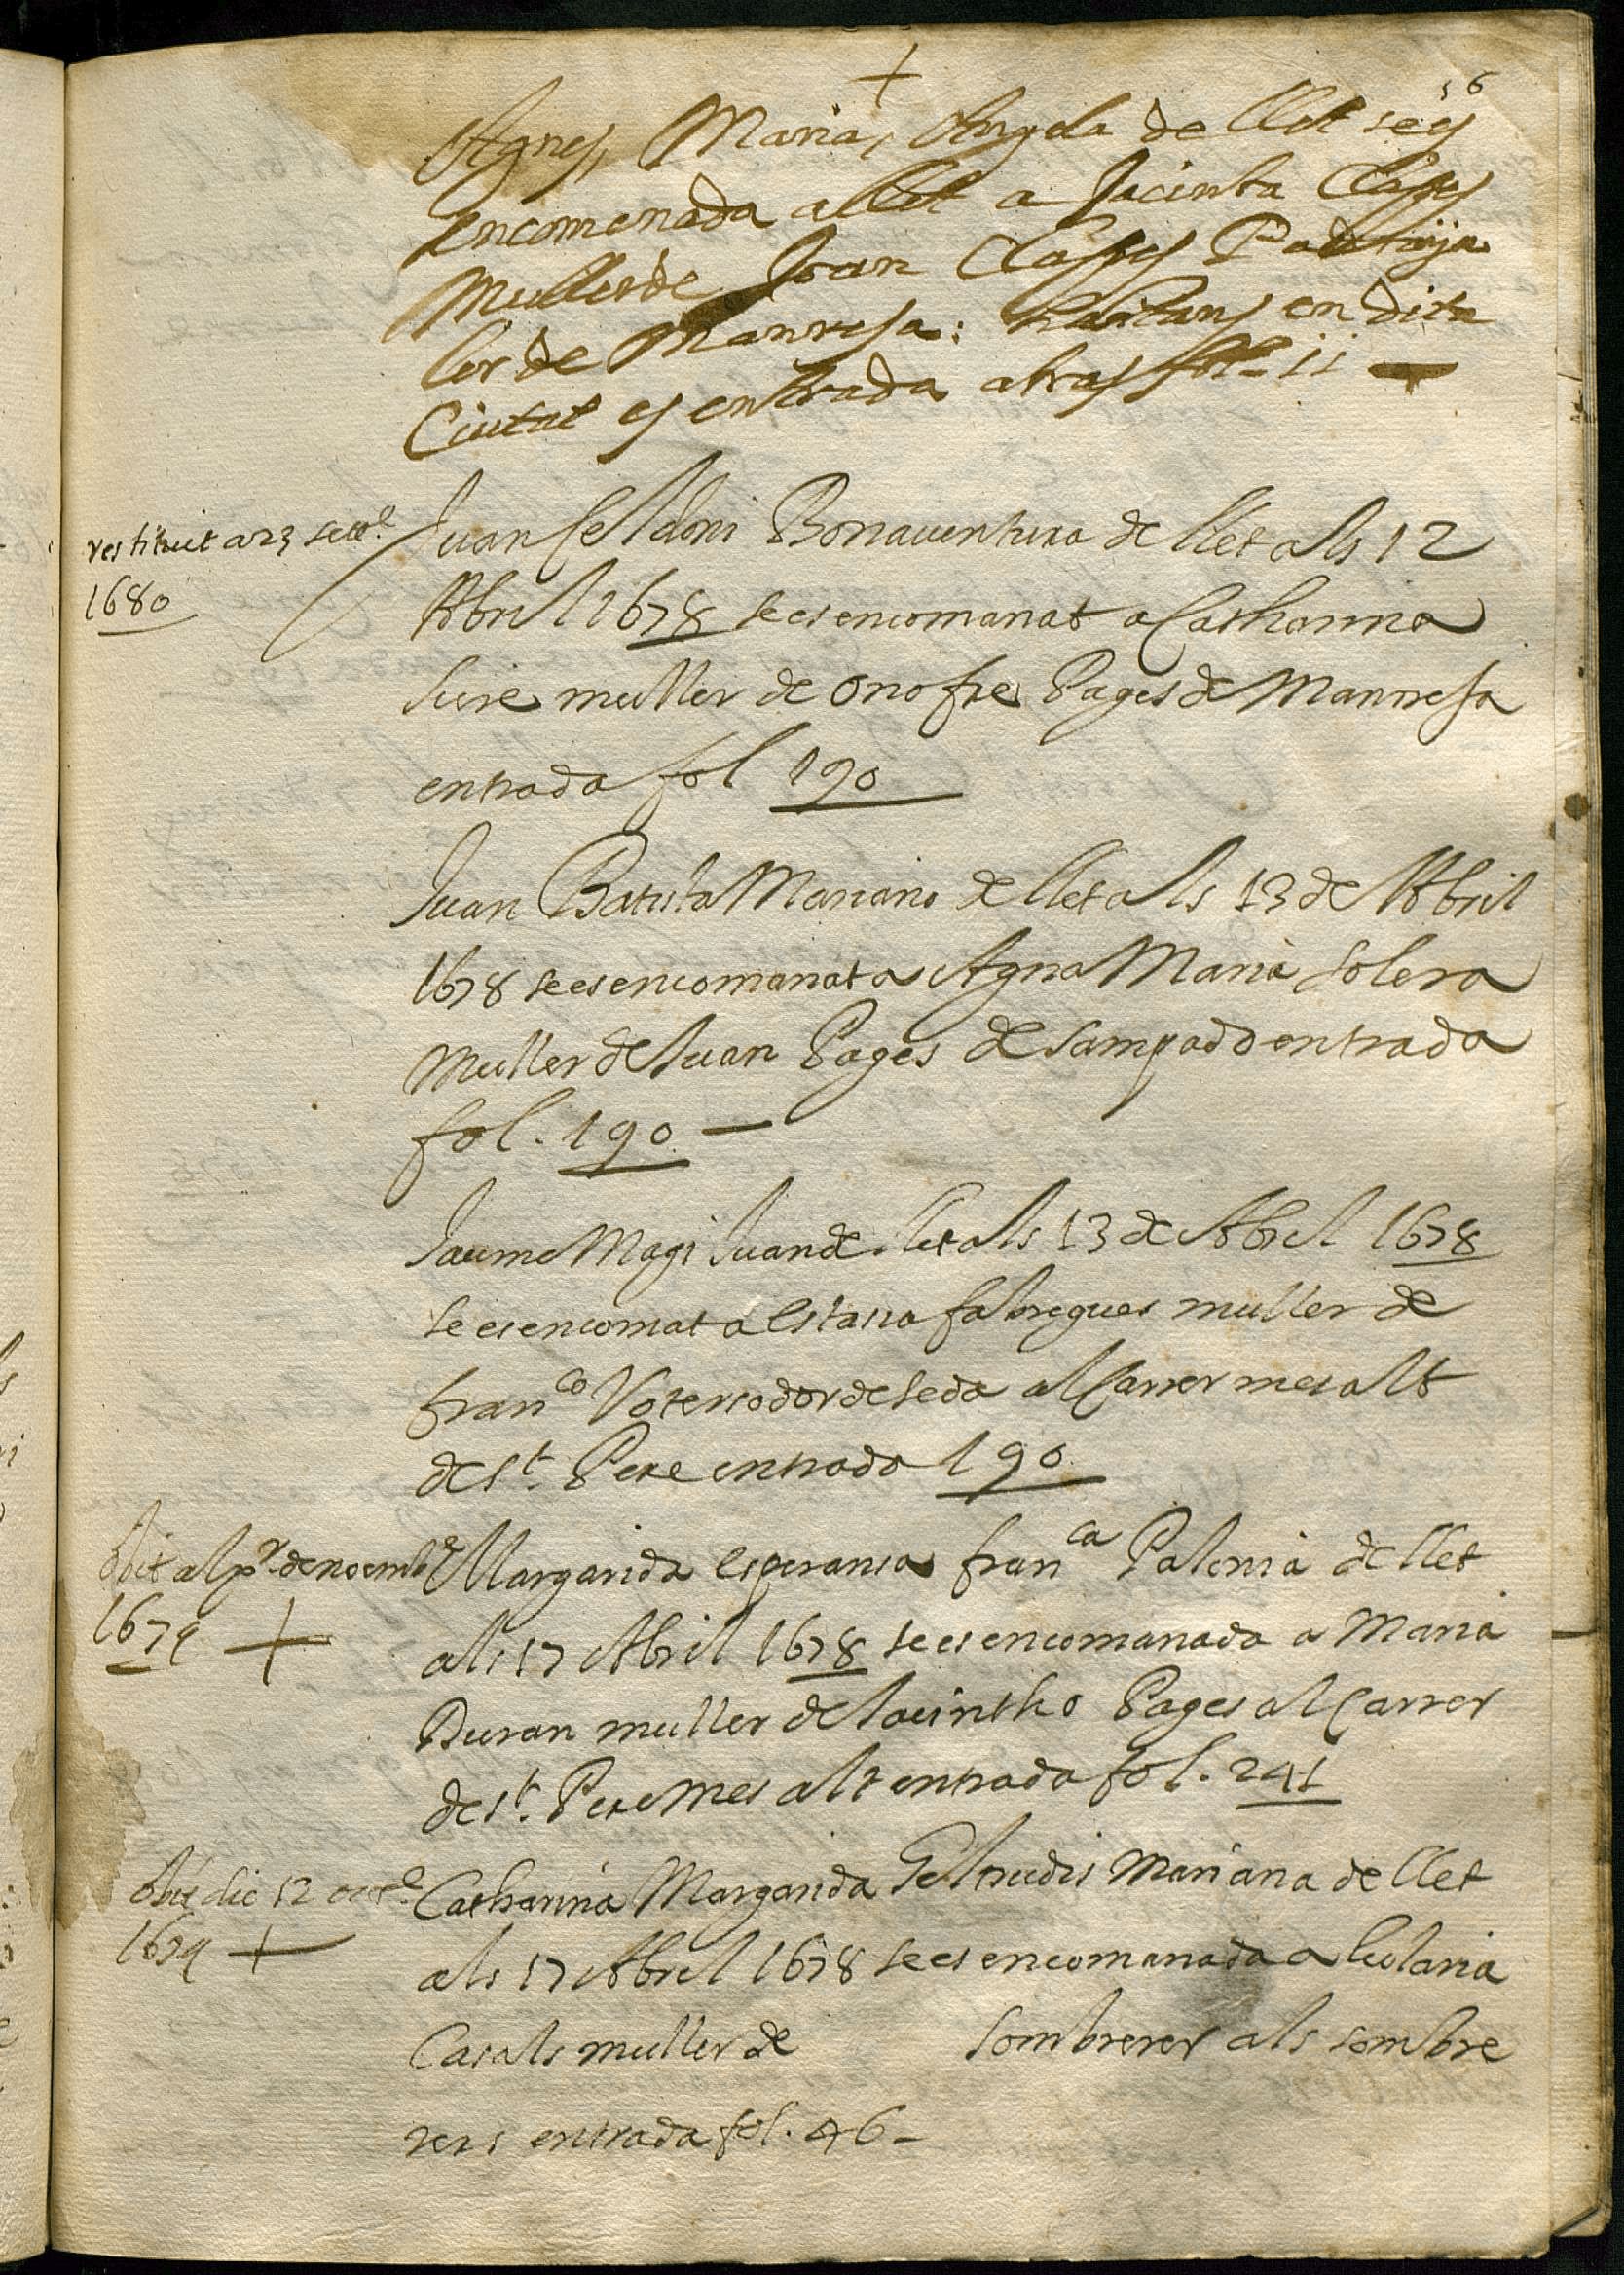 56
+
Agnes, Maria, Angela de llet se es
encomenada a llet a Jacinta Classes
Muller de Joan Classes
lor de Manresa: habitans en dita
Ciutat es entrada atras fol. 11
restituit a 23 setbe.
1680
Juan Seldoni Bonaventura de llet als 12
Abril 1678 se es encomanat a Catharina
Sire muller de Onofre Pages de Manresa
entrada fol 190
Juan Batista Mariano de llet als 13 de Abril
1678 se es encomanat a Agna Maria Solera
Muller de Juan Pages de Sampador entrada
fol. 190 —
Jaume Magi Juan de llet als 13 de Abril 1678
se es encomat a Estasia fabregues muller de
franco Vo tersador de seda al Carrer mes alt
de St. Pere entrada 190
obit al pr. de noembe
1679 +
Margarida Esperansa franca Palonia de llet
als 17 Abril 1678 se es encomanada a Maria
Duran muller de Jacintho Pages al Carrer
de St. Pere Mes alt entrada fol. 241
obit die 12 octe.
1679 +
Catharina Margarida Geltrudis Mariana de llet
als 17 Abril 1678 se es encomanada a Eularia
Casals muller de sombrerer als sombre
rers entrada fol. 46 –